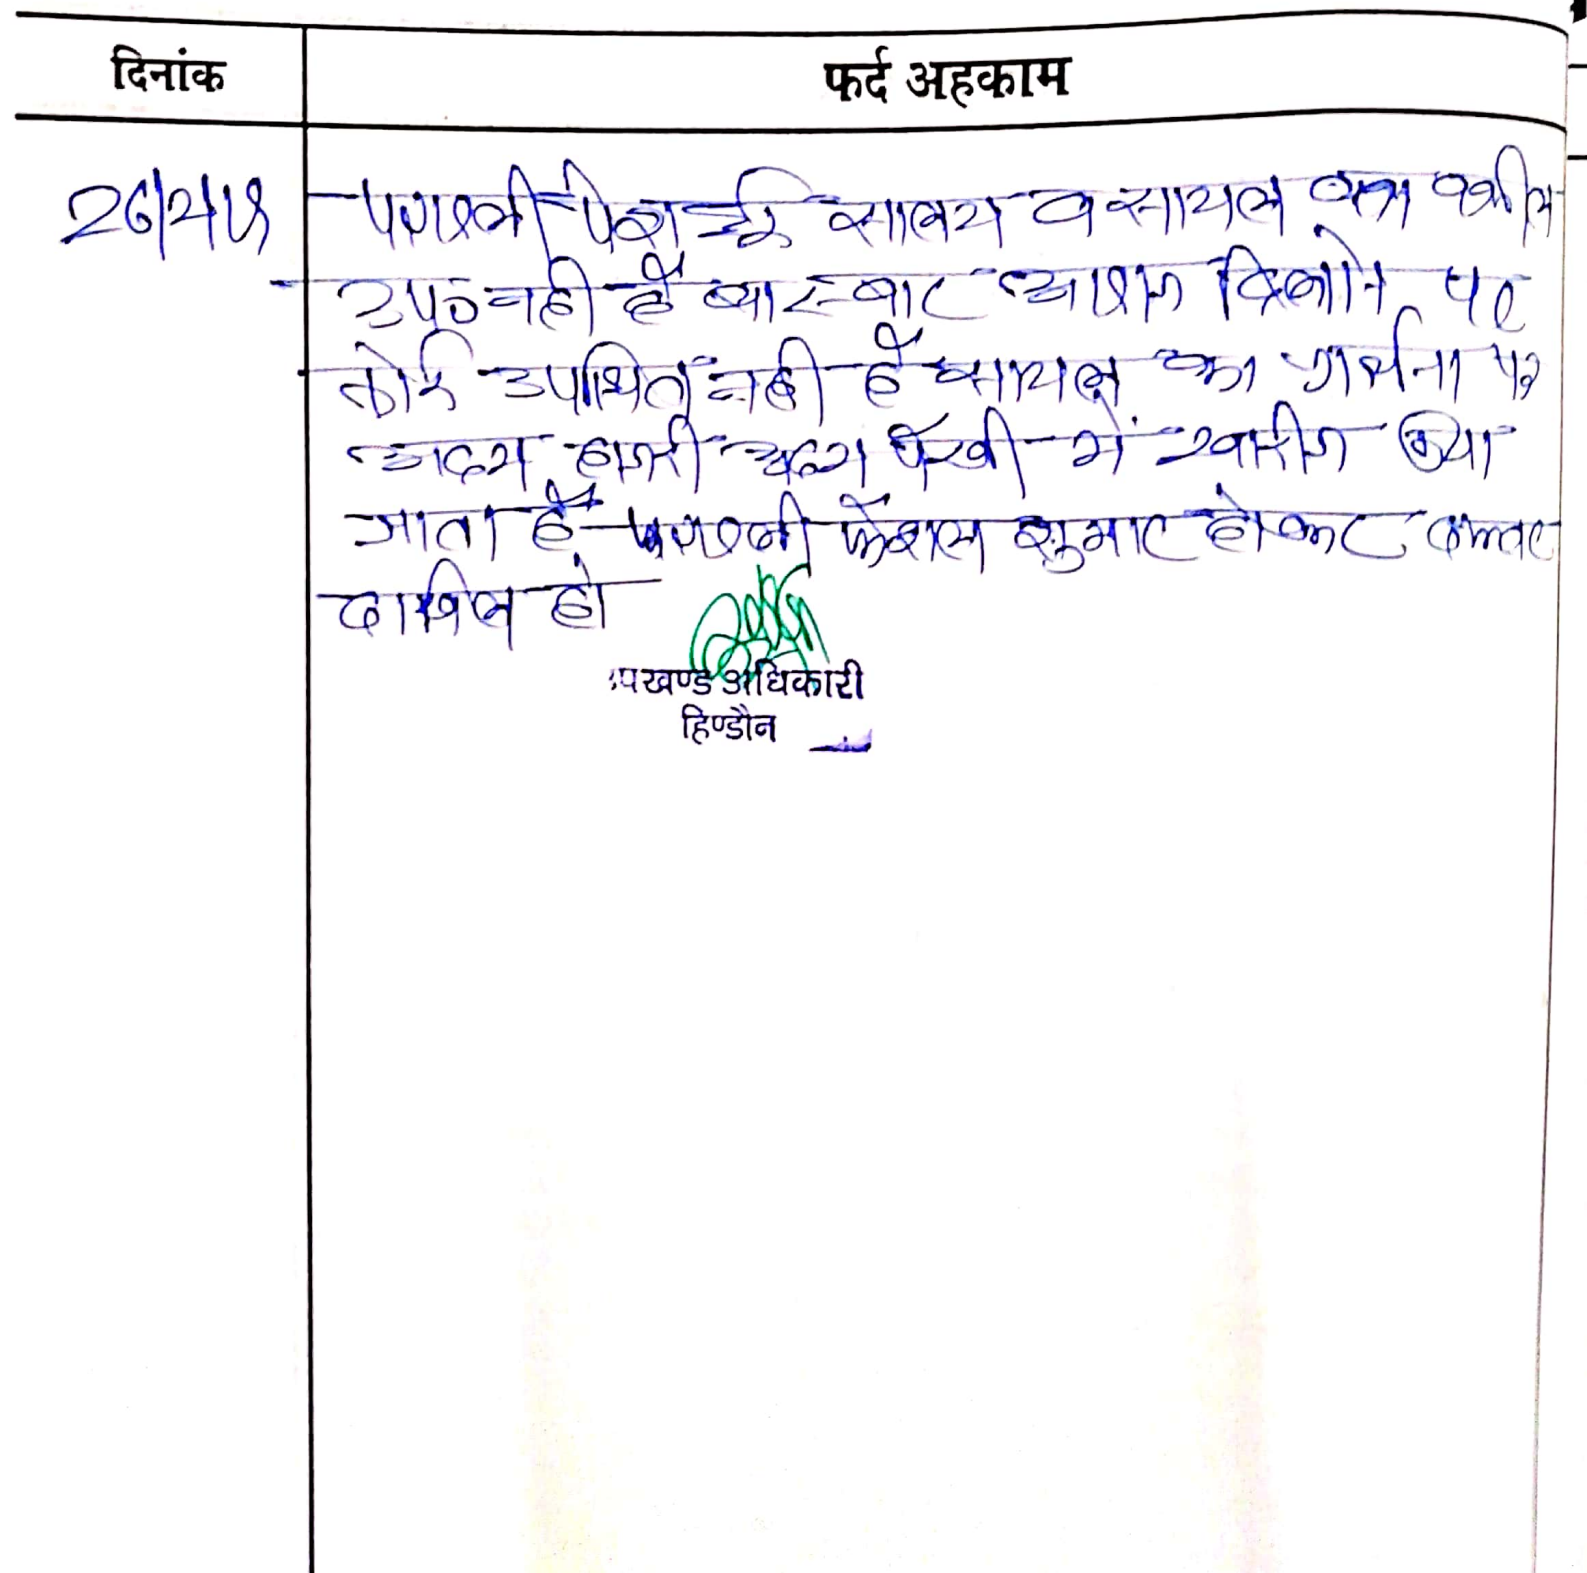 दिनांक
फर्द अहकाम
पत्रावली पेश हुई सायल व सायल का वकील
उप0 नही है बार-बार आवाज दिलाने पर
कोई उपस्थित नही है सायल का प्रार्थना पत्र
अदम हाजरी अदम पैरवी में खारीज किया
जाता है पत्रावली फैशल शुमार होकर दफ्तर
दाखिल हो
उपखण्ड अधिकारी
हिण्डौन